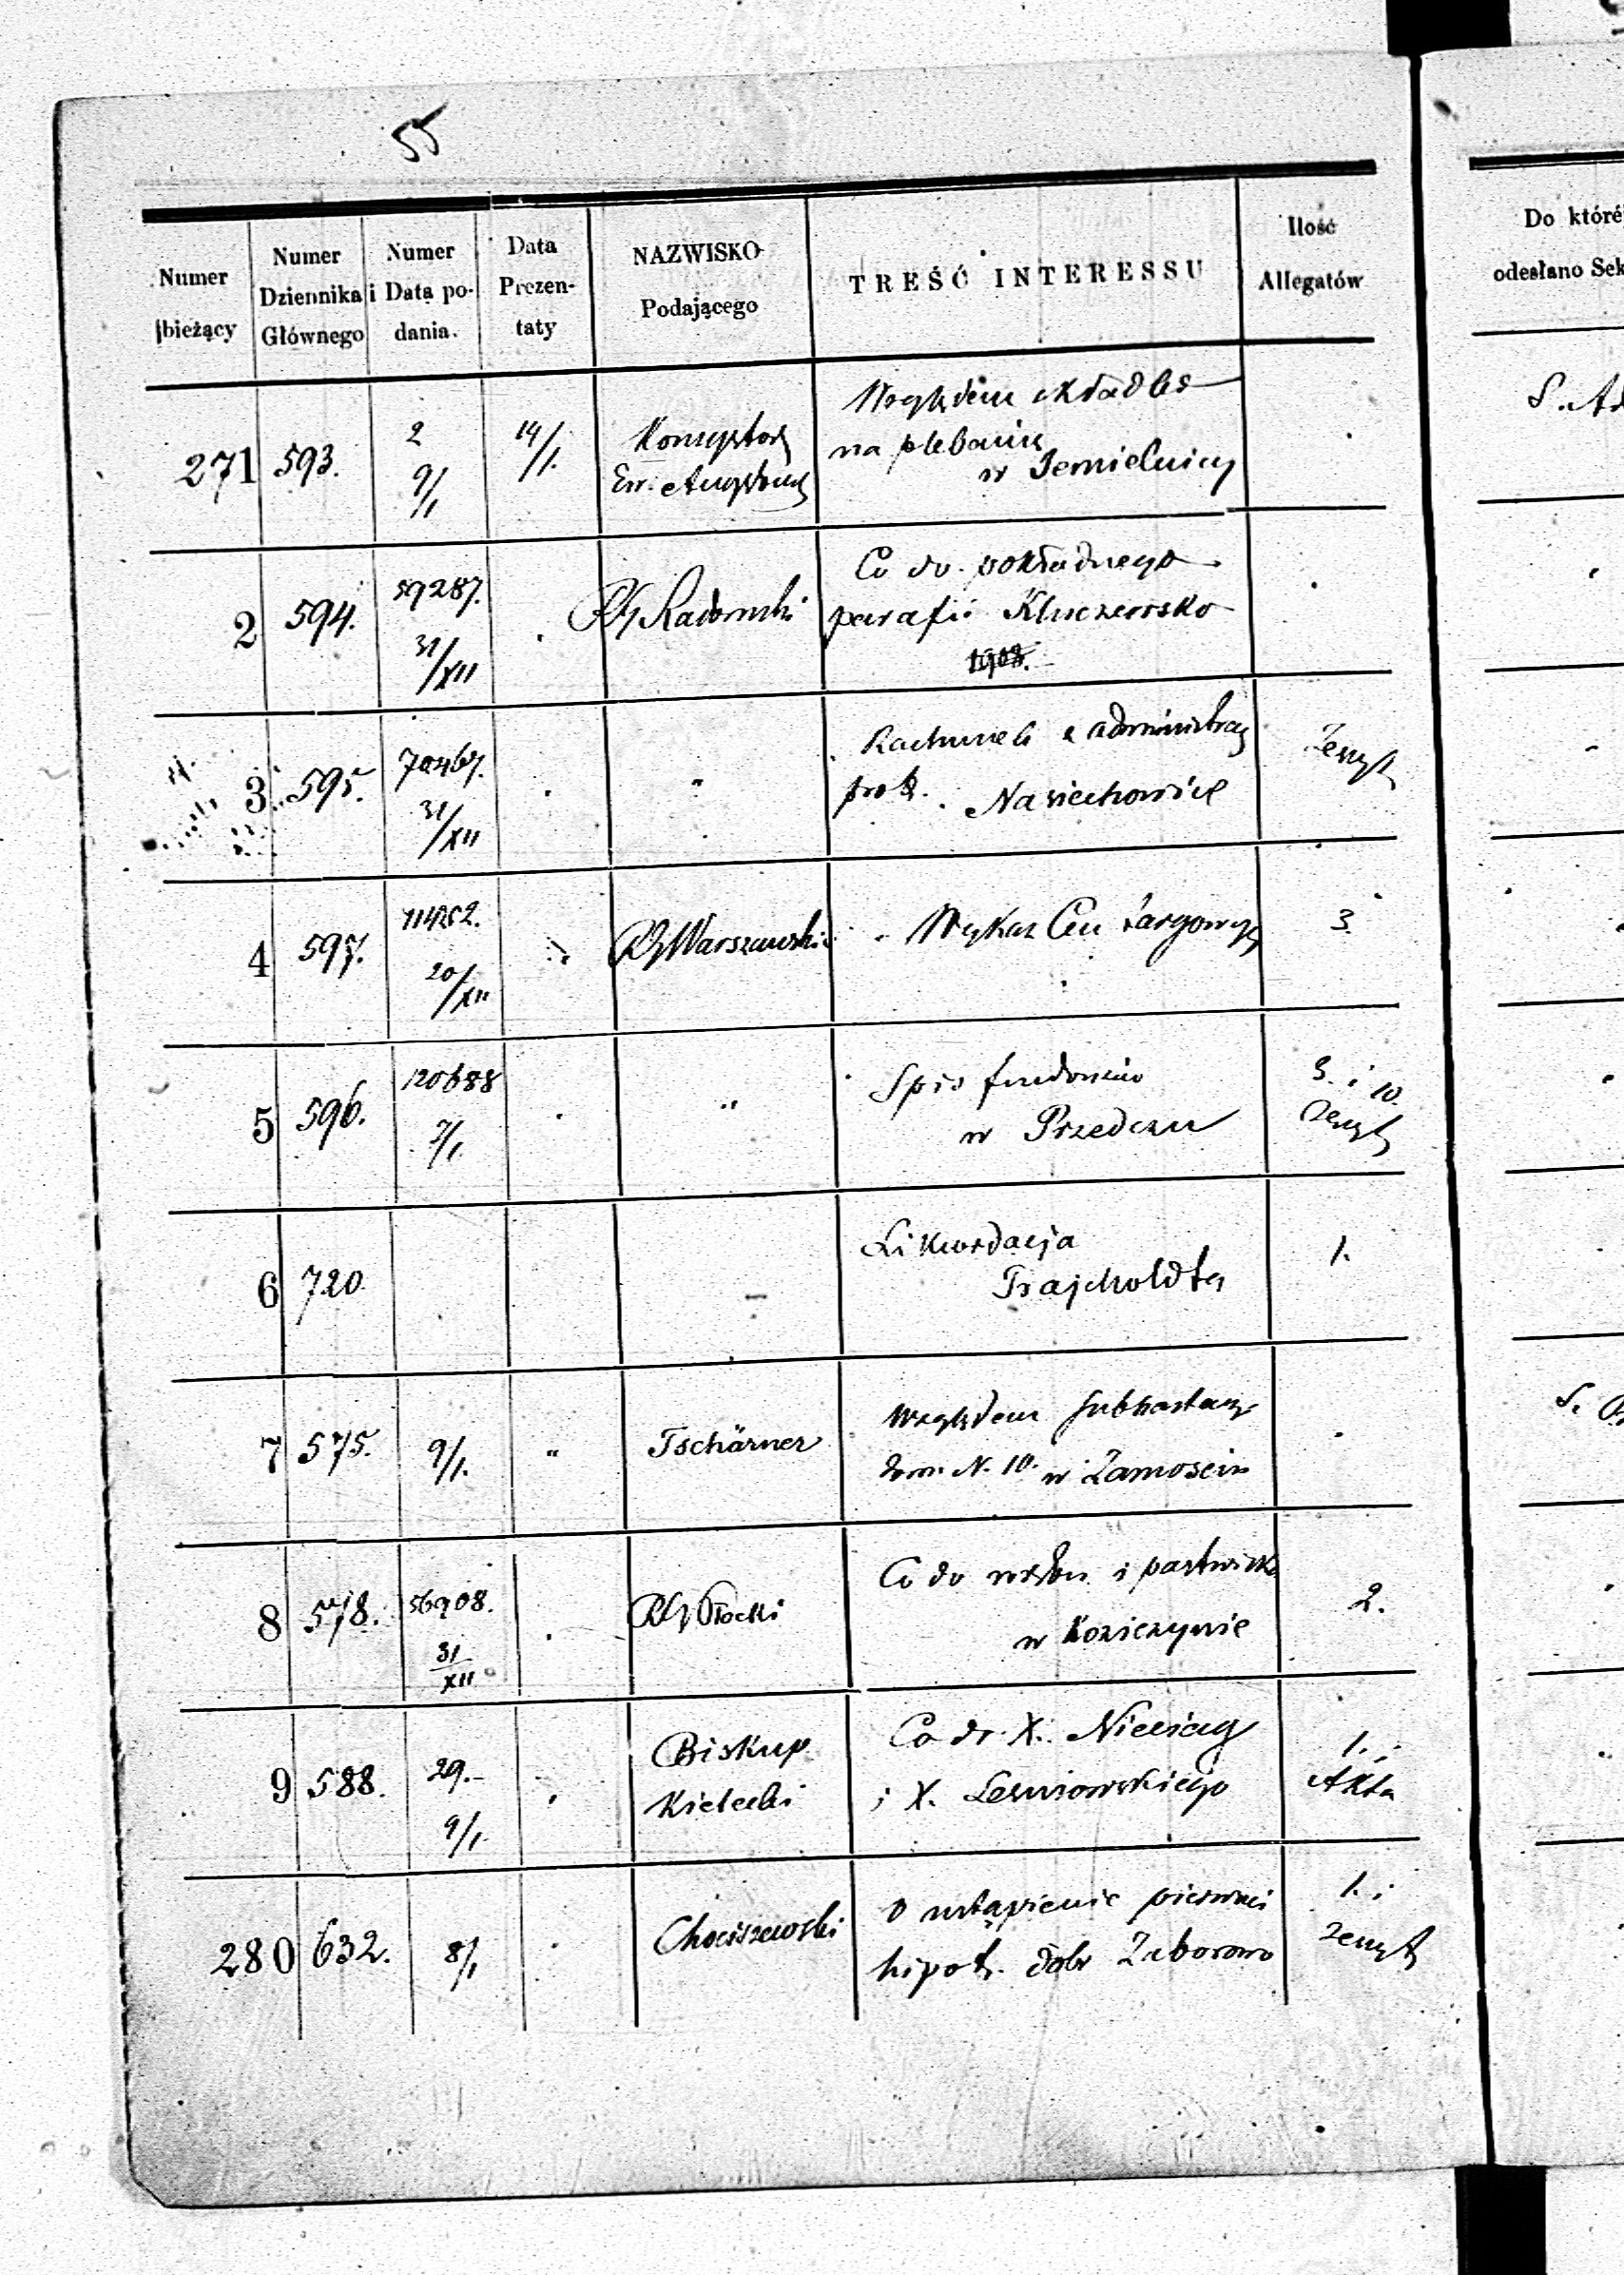 55
Numer
bieżący
Numer
Dziennika
Głównego
Numer
i Data po-
dania.
Data
Prezen-
taty
NAZWISKO
Podającego
TREŚĆ INTERESSU
Ilość
Allegatów
Do któré
odesłano Sek
271 593.
2
9/1
14/1.
Konsystorz
Ew. Augsburg
Względem składki
na plebanię
w Jemielnicy
S. Ad
2 594.
59287.
31/XII
RG Radomski
Co do pokładnego
parafii Kluczewsko
3 595.
31/XII
"
Rachunek z administracy
Nasiechowice
Zeszyt
4 597.
20/XII
RG Warszawski
Wykaz Cen targowych
3.
5 596.
120688
7/1.
"
Spis fundoszów
w Przedczu
3. i 10.
Zeszyt
6 720.
Likwidacja
Trajcholdta
1.
7 575.
9/1.
"
Tschärner
względem subhastacy
dom. N. 10. w Zamościu
S.
8 578.
56908.
31
XII
RG Płocki
Co do i pastwisk
w Koziczynie
2.
9 588.
29.-
9/1.
Biskup
Kielecki
Co do X.
i X. Leśniowskiego
1. i
Akta
280 632.
8/1
Chociszewski
O ustąpienie pierwsz
hipot. dóbr Zaborowo
1. i
zeszyt